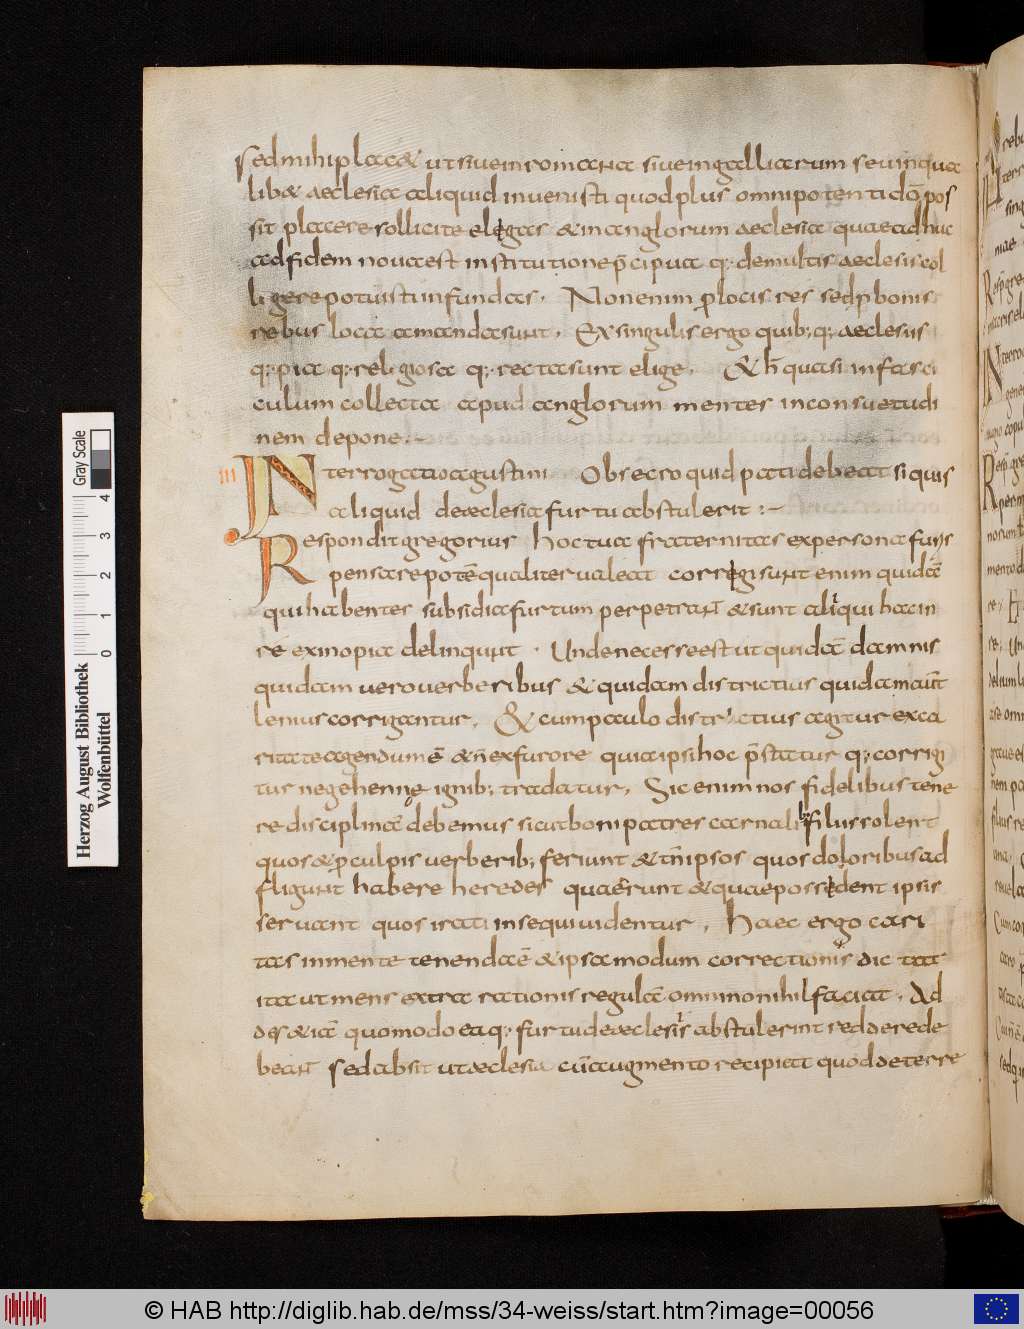 sed mihi placet ut siue in romana siue in galliarum seu in qua
libet aeclesia aliquid inuenisti quod plus omnipotenti dō pos
sit placere sollicite elegas & in anglorum aeclesia quae adhuc
ad fidem noua est institutione p̄cipua q; de multis aeclesiis col
ligere potuisti infundas. Non enim ꝓ locis res sed ꝓ bonis
rebus loca amanda sunt. Ex singulis ergo quib; q; aeclesiis
q; pia q; religiosa q; recta sunt elige. & h̄ quasi in fasci
culum collecta apud anglorum mentes in consuetudi
nem depone:-
III INterrogatio agustini Obsecro quid pati debeat si quis
aliquid de aeclesia furtu abstulerit :-
Respondit gregorius hoc tua fraternitas ex persona furis
pensare potē qualiter ualeat corregi sunt enim quidā
qui habentes subsidia furtum perpetrant & sunt aliqui hac in
re ex inopia delinqunt . Unde necesse est ut quidā damnis
quidam uero uerberibus & quidam districtius quidam aūt
lenius corrigantur. & cum paulo districtius agitur ex ca
ritate agendum ē & n̄ ex furore quia ipsi hoc p̄statur q; corrigi
tur ne gehenne ignib; tradatur. Sic enim nos fidelibus tene
re disciplinā debemus sicut boni patres carnalib; filiis solent
quos & ꝓ culpis uerberib; feriunt & tn̄ ipsos quos doloribus ad
fligunt habere heredes quaerunt & quae possedent ipsis
seruant quos irati insequi uidentur. Haec ergo cari
tas in mente tenenda ē & ipsa modum correctionis dictat
ita ut mens extra rationis regulā omnino nihil faciat. Ad
des & iā quomodo ea q; furtu de aeclesiis abstulerint reddere de
beant sed absit ut aeclesia cū augmento recipiat quod de terre
Herzog August Bibliothek
Wolfenbüttel
Gray Scale
0 1 2 3 4
© HAB http://diglib.hab.de/mss/34-weiss/start.htm?image=00056